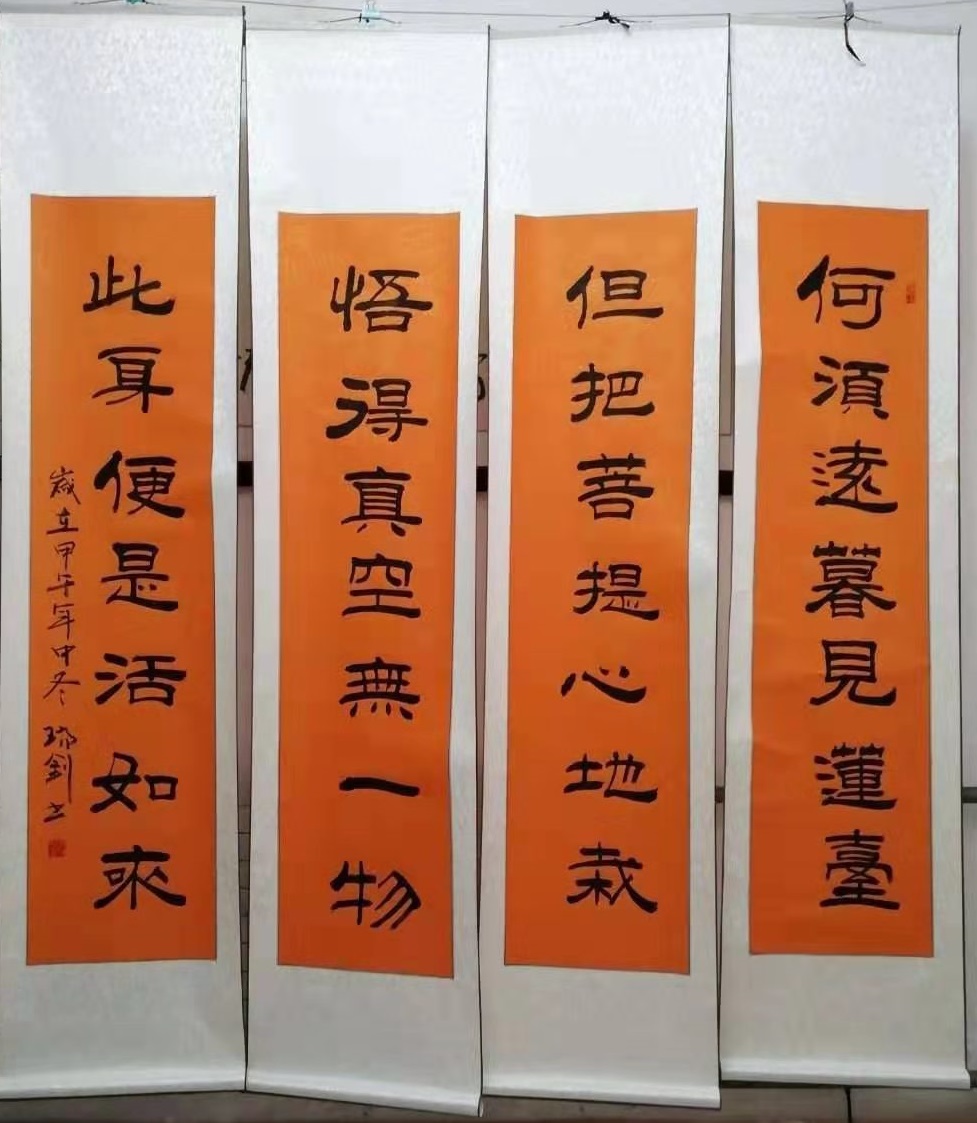 何須遠暮見蓮臺
但把菩提心地栽
悟得真空無一物
此耳便是活如來
歲在甲午年中冬
劉